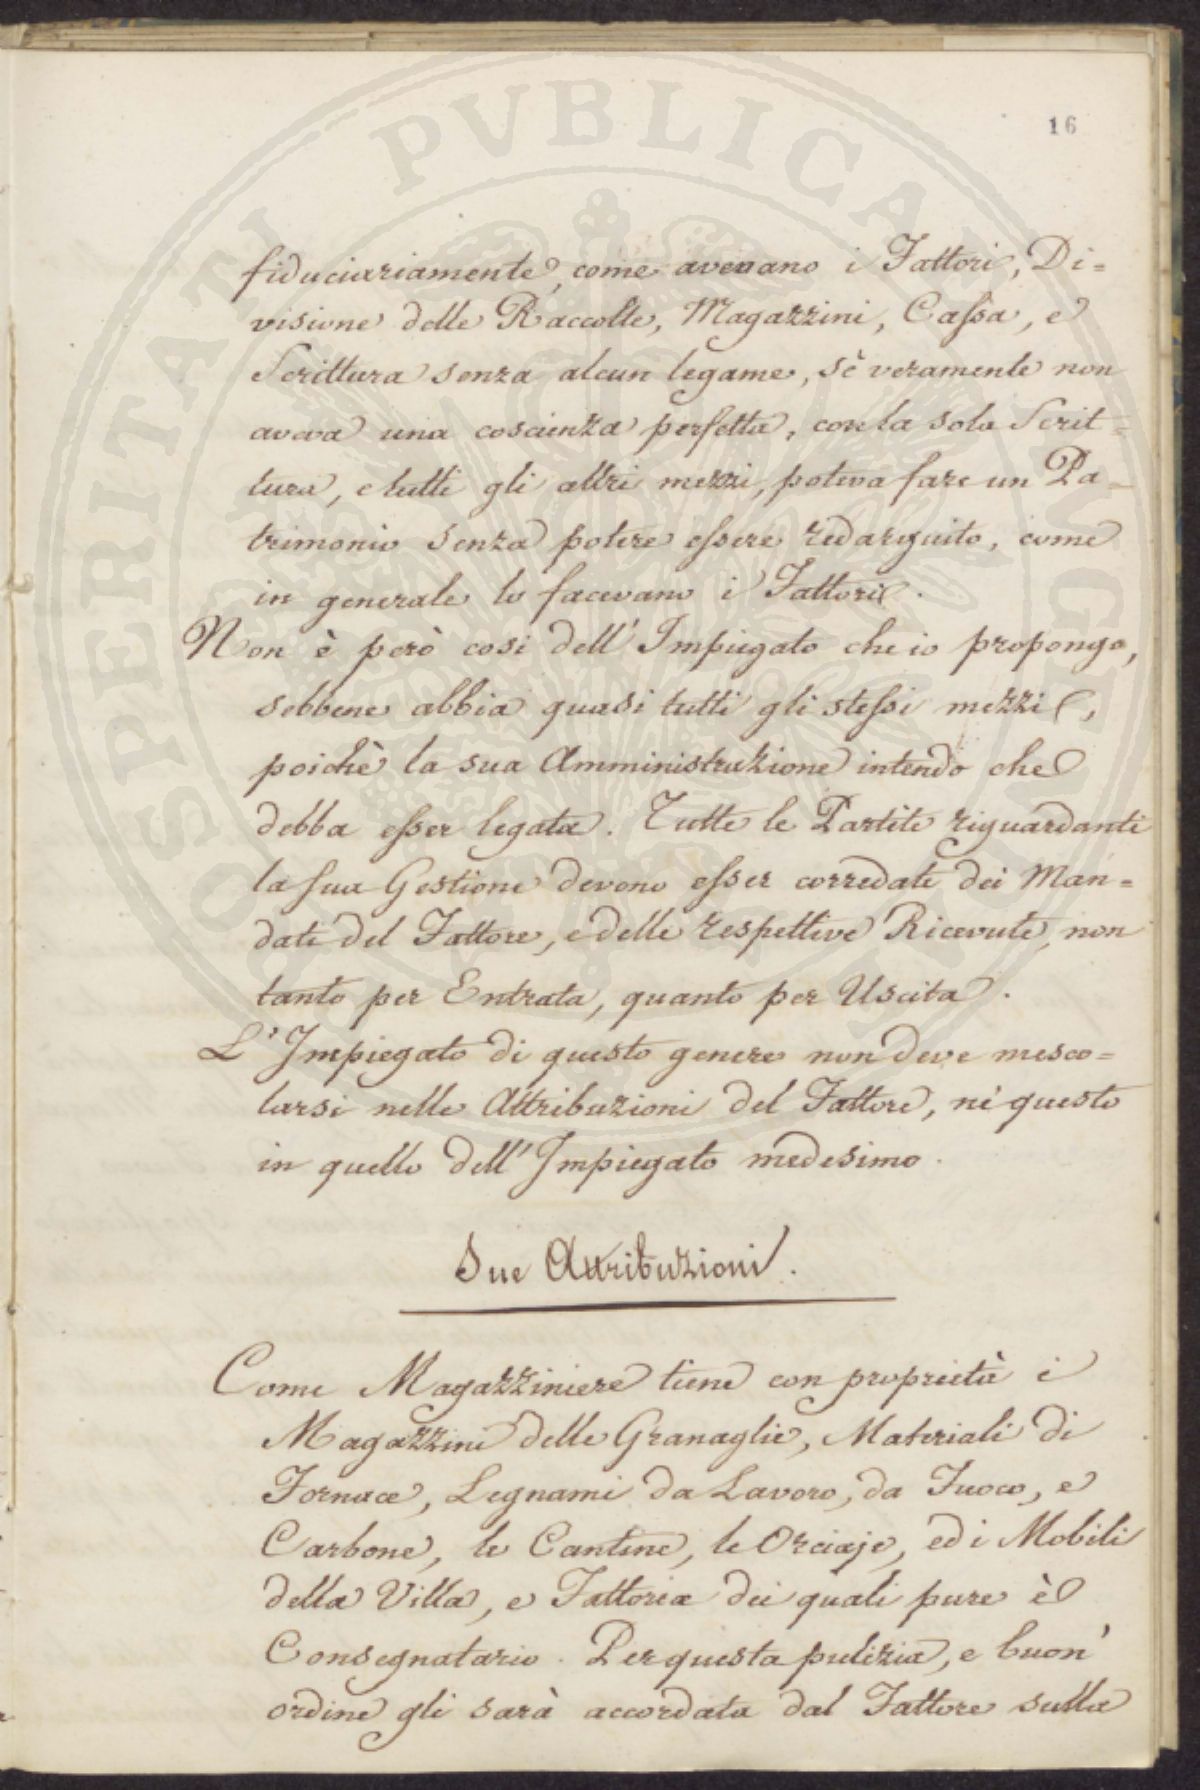 16
fiduciariamente, come avevano i Fattori, Di=
visione delle Raccolte, Magazzini, Cassa, e
Scrittura senza alcun legame, sè veramente non
aveva una coscienza perfetta, con la sola Scrit=
tura, e tutti gli altri mezzi, poteva fare un Pa=
trimonio senza potere essere redarguito, come
in generale lo facevano i Fattori.
Non è però cosi dell' Impiegato che io propongo,
sebbene abbia quasi tutti gli stessi mezzi,
poichè la sua Amministrazione intendo che
debba esser legata. Tutte le Partite riguardanti
la sua Gestione devono esser corredate dei Man=
dati del Fattore, e delle respettive Ricevute, non
tanto per Entrata, quanto per Uscita.
L' Impiegato di questo genere non deve mesco=
larsi nelle Attribuzioni del Fattore, nè questo
in quelle dell' Impiegato medesimo.
Sue Attribuzioni.
Come Magazziniere tiene con proprietà i
Magazzini delle Granaglie, Materiali di
Fornace, Legnami da Lavoro, da Fuoco, e
Carbone, le Cantine, le Orciaje, ed i Mobili
della Villa, e Fattoria dei quali pure è
Consegnatario. Per questa pulizia, e buon'
ordine gli sarà accordata dal Fattore sulla
PROSPERITATI PVBLICAE AVGENDAE